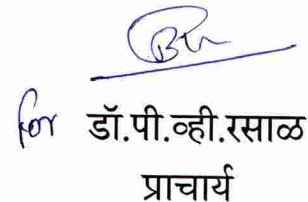 for डॉ.पी.व्ही.रसाळ
प्राचार्य